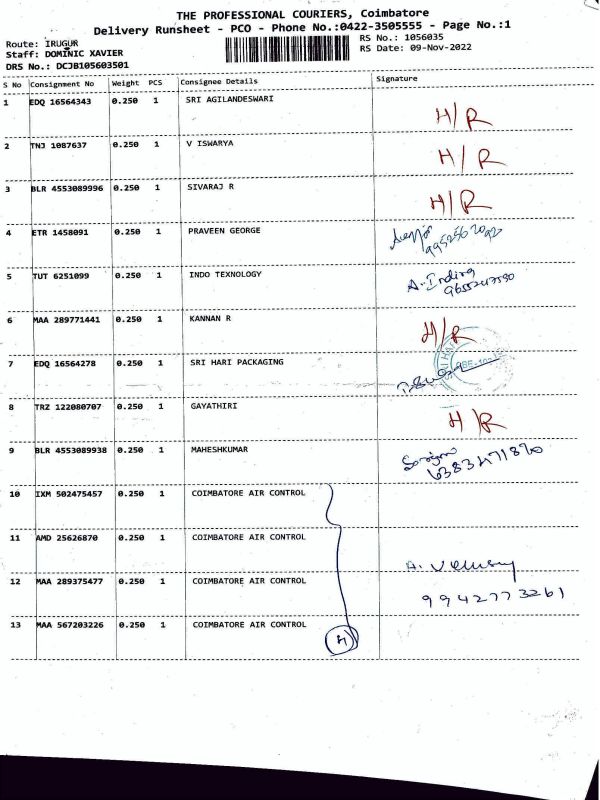 THE PROFESSIONAL COURIERS, Coimbatore
Delivery Runsheet - PCO - Phone No.:0422-3505555 - Page No.:1
Route: IRUGUR
RS No.: 1056035
Staff: DOMINIC XAVIER
RS Date: 09-Nov-2022
DRS No.: DCJB105603501
S No Consignment No Weight PCS Consignee Details Signature
1 EDQ 16564343 0.250 1 SRI AGILANDESWARI H/R
2 TNJ 1087637 0.250 1 V ISWARYA H/R
3 BLR 4553089996 0.250 1 SIVARAJ R H/R
4 ETR 1458091 0.250 1 PRAVEEN GEORGE
5 TUT 6251099 0.250 1 INDO TEXNOLOGY A. Indira
6 MAA 289771441 0.250 1 KANNAN R H/R
7 EDQ 16564278 0.250 1 SRI HARI PACKAGING
8 TRZ 122080707 0.250 1 GAYATHIRI H/R
9 BLR 4553089938 0.250 1 MAHESHKUMAR
10 IXM 502475457 0.250 1 COIMBATORE AIR CONTROL
11 AMD 25626870 0.250 1 COIMBATORE AIR CONTROL
12 MAA 289375477 0.250 1 COIMBATORE AIR CONTROL 9942773261
13 MAA 567203226 0.250 1 COIMBATORE AIR CONTROL